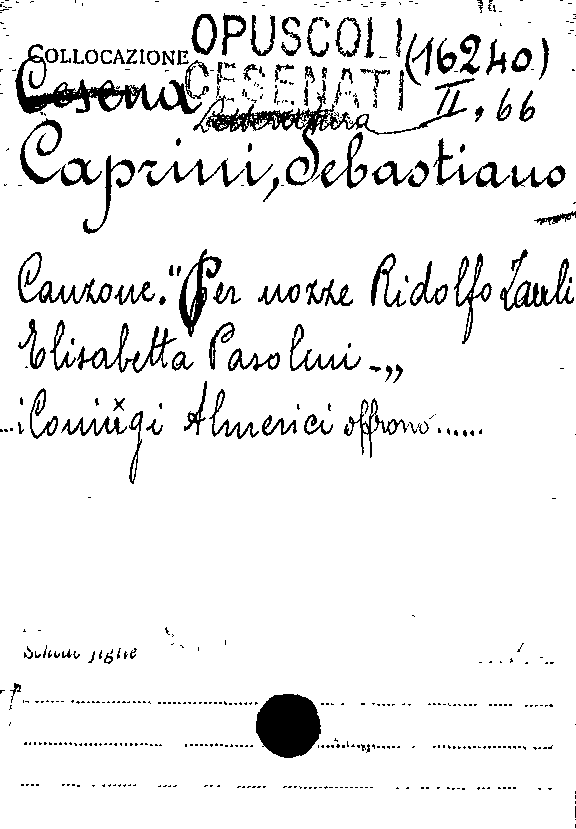 COLLOCAZIONE OPUSCOLI (16240)
Cesena CESENATI II, 66
Letteratura
Caprini, Sebastiano
Canzone. "Per nozze Ridolfo Zauli
Elisabetta Pasolini -„
...i Coniugi Almerici offrono......
Schede figlie